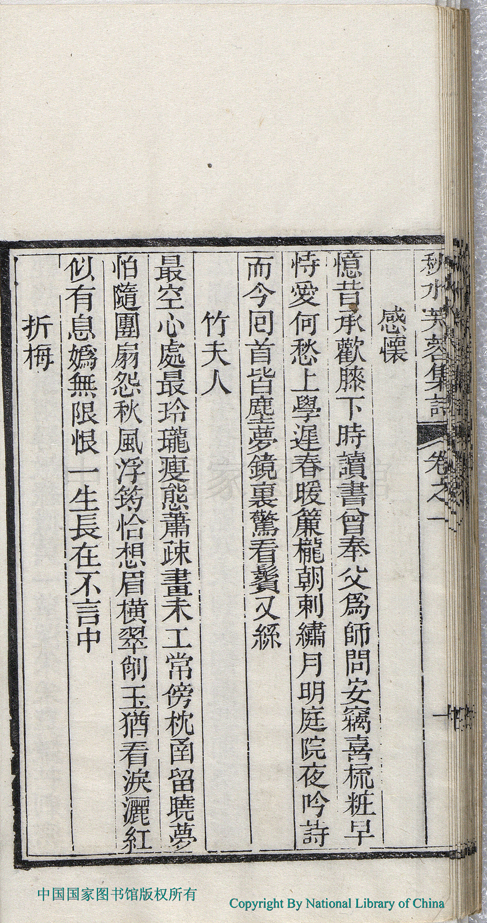 秋水芙蓉集詩 卷之一
感懷
憶昔承歡膝下時讀書曾奉父爲師問安竊喜梳粧早
恃愛何愁上學遲春暖簾櫳朝刺繡月明庭院夜吟詩
而今囘首皆塵夢鏡裏驚看鬢又絲
竹夫人
最空心處最玲瓏瘦態蕭疎畫未工常傍枕函留曉夢
怕隨團扇怨秋風浮筠恰想眉橫翠削玉猶看淚灑紅
似有息嬀無限恨一生長在不言中
折梅
中国国家图书馆版权所有
Copyright By National Library of China